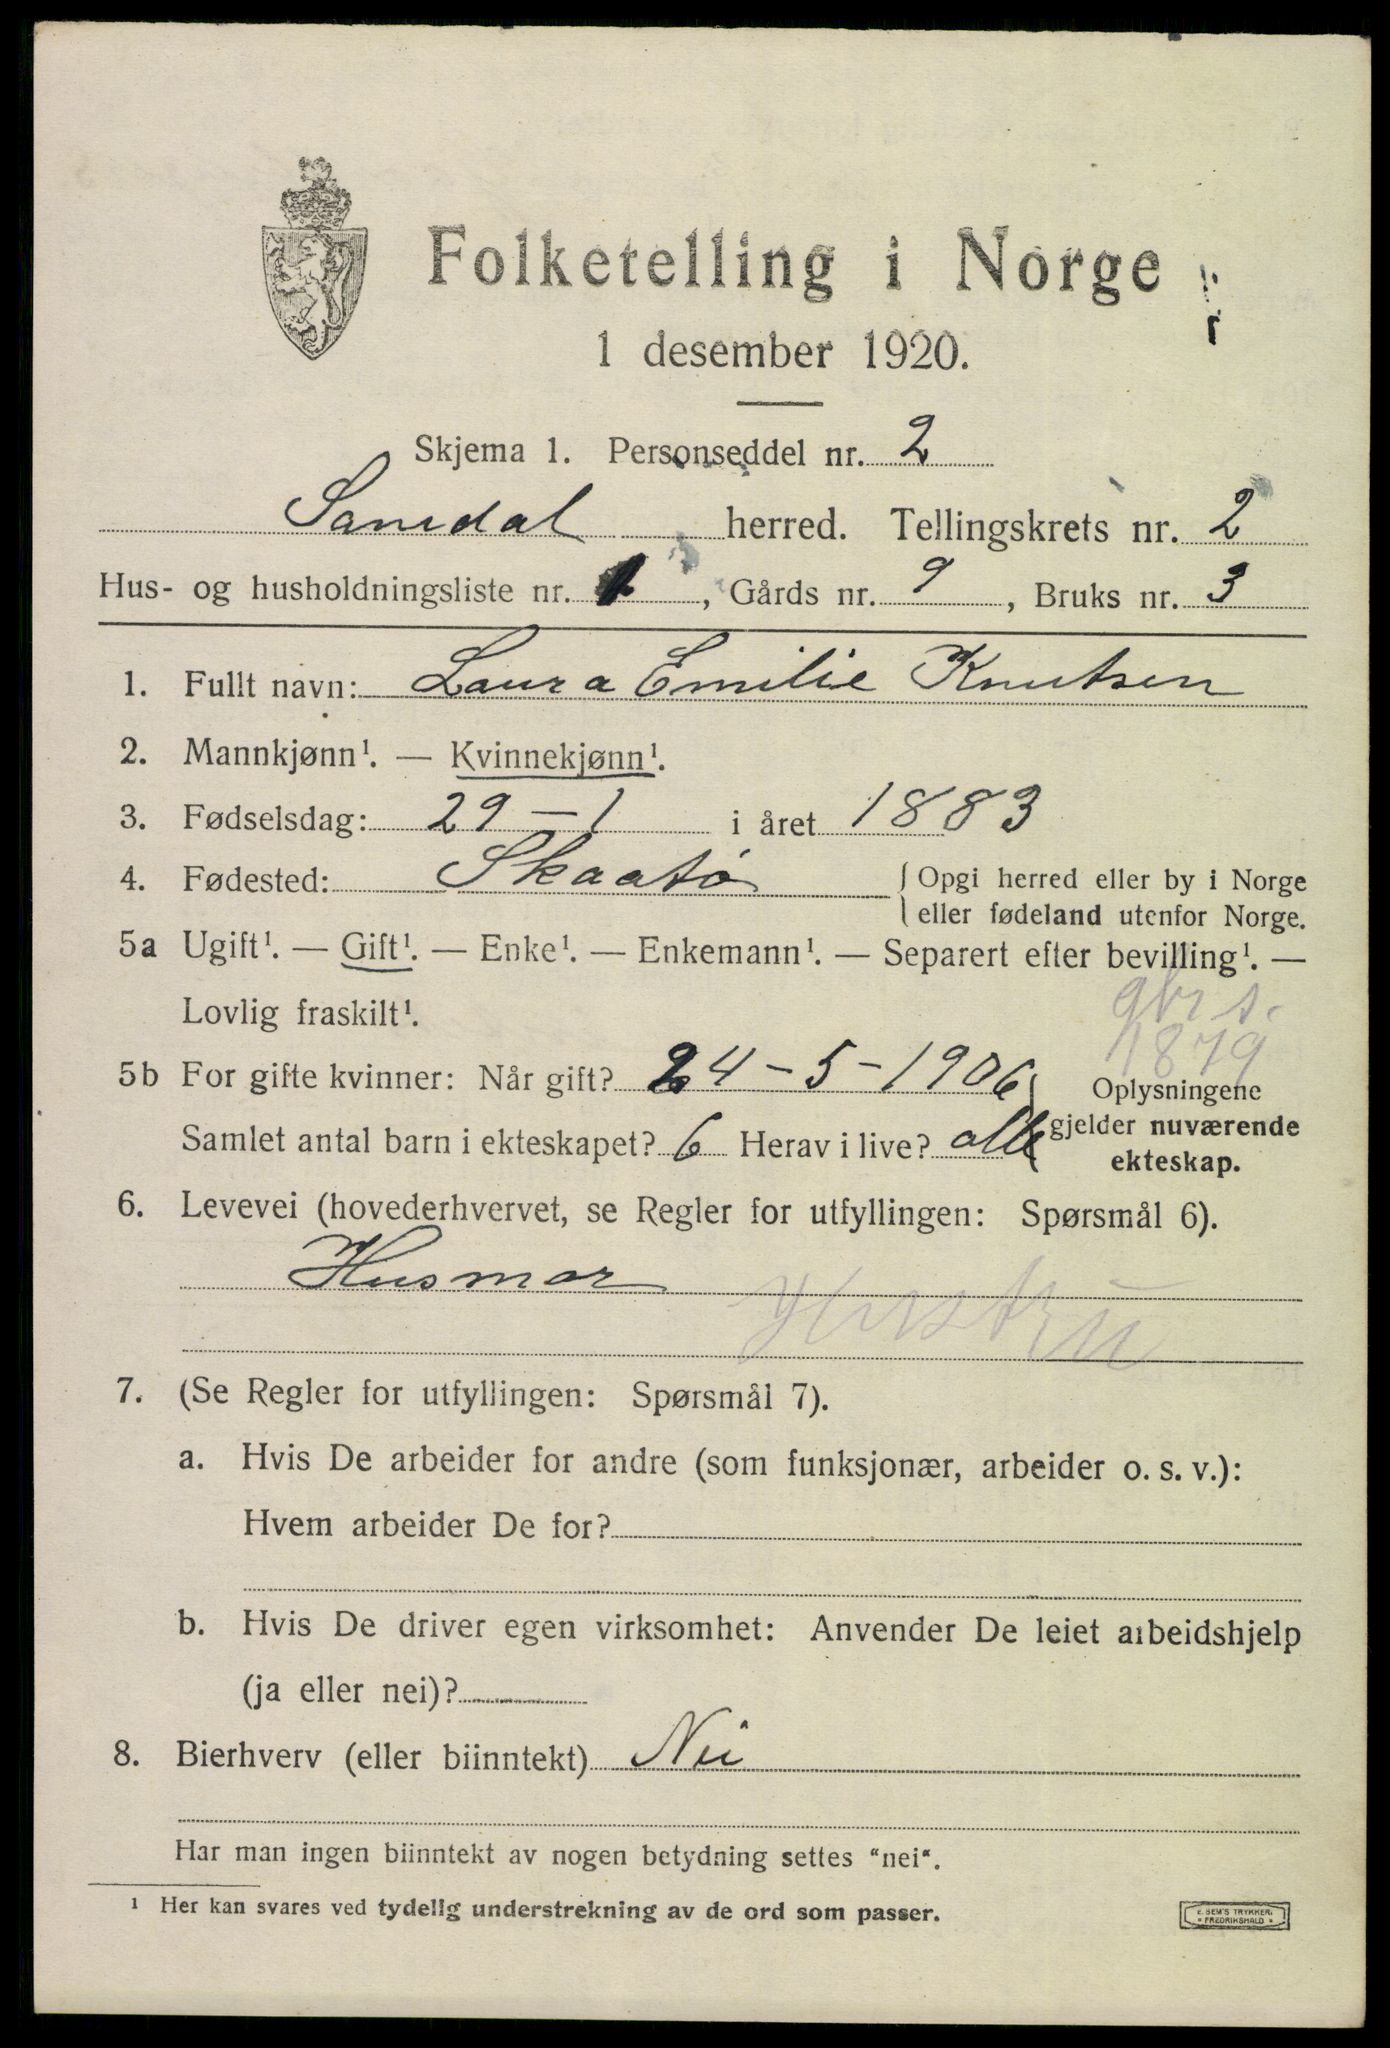 Folketelling i Norge
1 desember 1920.
Skjema 1. Personseddel nr. 2
Sanidal herred. Tellingskrets nr. 2
Hus- og husholdningsliste nr. 1, Gårds nr. 9, Bruks nr. 3
1. Fullt navn: Laura Emilie Knutsen
2. Mannkjønn¹. — Kvinnekjønn¹.
3. Fødselsdag: 29 – 1 i året 1883
4. Fødested: Skaatø { Opgi herred eller by i Norge
eller fødeland utenfor Norge.
5a Ugift¹. — Gift¹. — Enke¹. — Enkemann¹. — Separert efter bevilling¹. —
Lovlig fraskilt¹.
gbr s.
1879
5b For gifte kvinner: Når gift? 24 – 5 – 1906 } Oplysningene
Samlet antal barn i ekteskapet? 6 Herav i live? alle gjelder nuværende
ekteskap.
6. Levevei (hovederhvervet, se Regler for utfyllingen: Spørsmål 6).
Husmor
Hustru
7. (Se Regler for utfyllingen: Spørsmål 7).
a. Hvis De arbeider for andre (som funksjonær, arbeider o. s. v.):
Hvem arbeider De for?
b. Hvis De driver egen virksomhet: Anvender De leiet arbeidshjelp
(ja eller nei)?
8. Bierhverv (eller biinntekt) Nei
Har man ingen biinntekt av nogen betydning settes "nei".
¹ Her kan svares ved tydelig understrekning av de ord som passer.
E. SEM'S TRYKKERI
FREDRIKSHALD